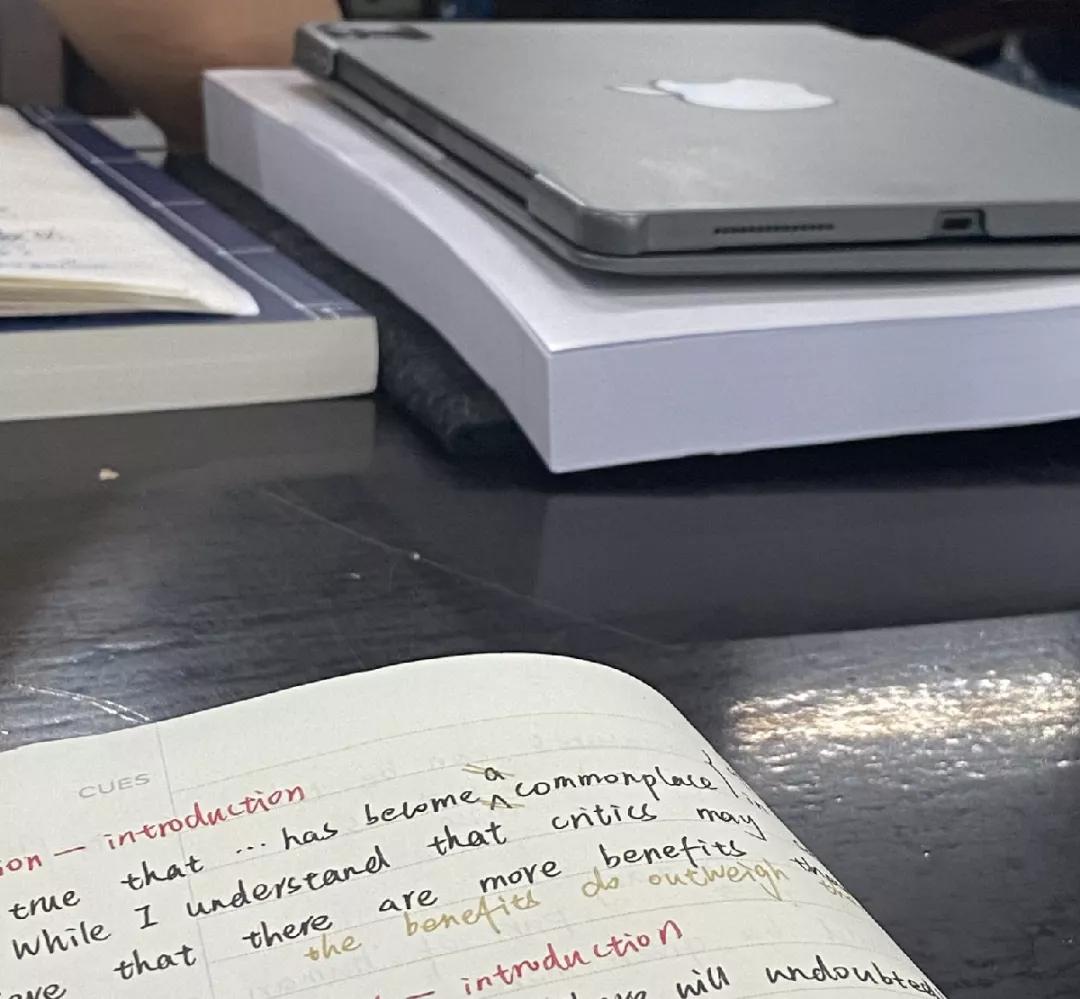 CUES
ion — introduction
true that ... has become a commonplace
While I understand that critics may
that there are more benefits
the benefits do outweigh
— introduction
will undoubted